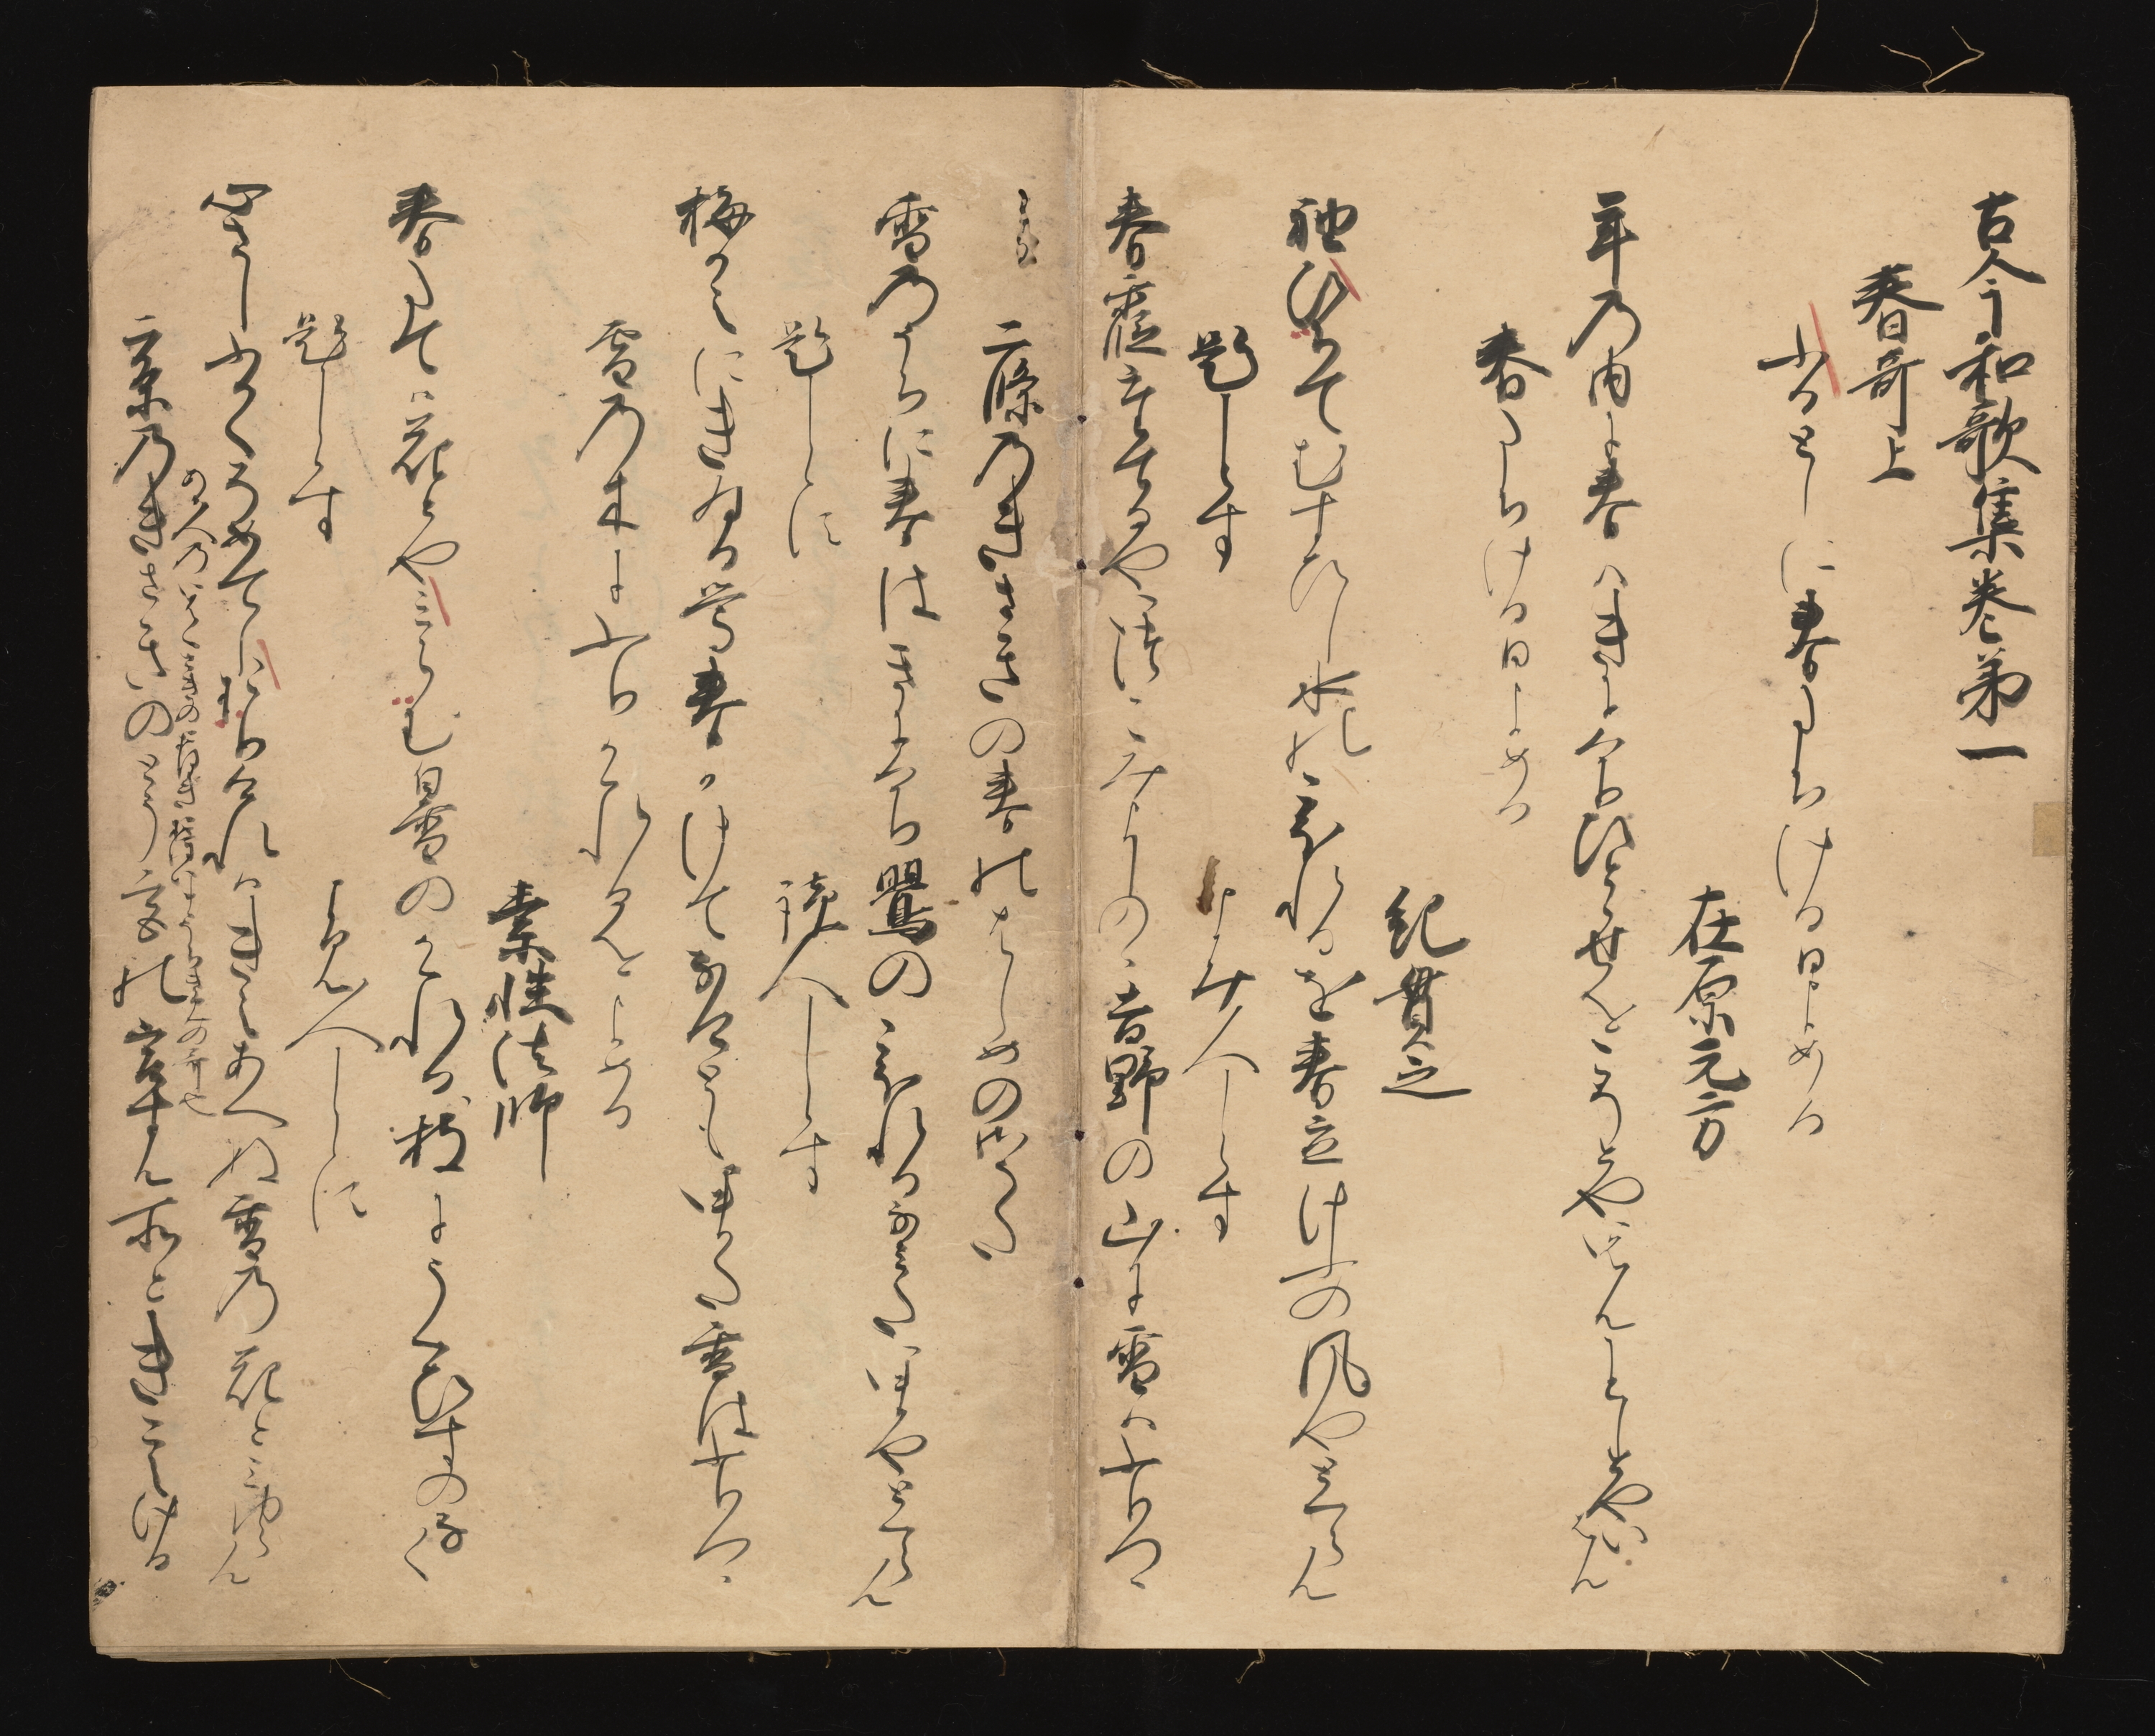 古今和歌集巻第一
春哥上
ふるとしに春たちける日よめる
在原元方
年乃内に春はきにけりひとゝせをこそとやいはんことしとやいはん
春たちける日よめる
紀貫之
袖ひちてむすひし水のこほれるを春立けふの風やとくらん
題しらす
よみ人しらす
春霞たてるやいつこみよしのゝ吉野の山に雪はふりつゝ
二條乃きさきの春のはしめの御うた
雪乃うちに春はきにけり鶯のこほれるなみたいまやとくらん
題しらす
読人しらす
梅かえにきゐる鶯春かけてなけともいまた雪はふりつゝ
雪乃木にふりかゝれるをよめる
素性法師
春たては花とやみらむ白雪のかゝれる枝にうくひすのなく
題しらす
よみ人しらす
心さしふかくそめてしおりけれはきえあへぬ雪乃花とみゆらん
二条乃きさきのとう宮のみやすん所ときこえける